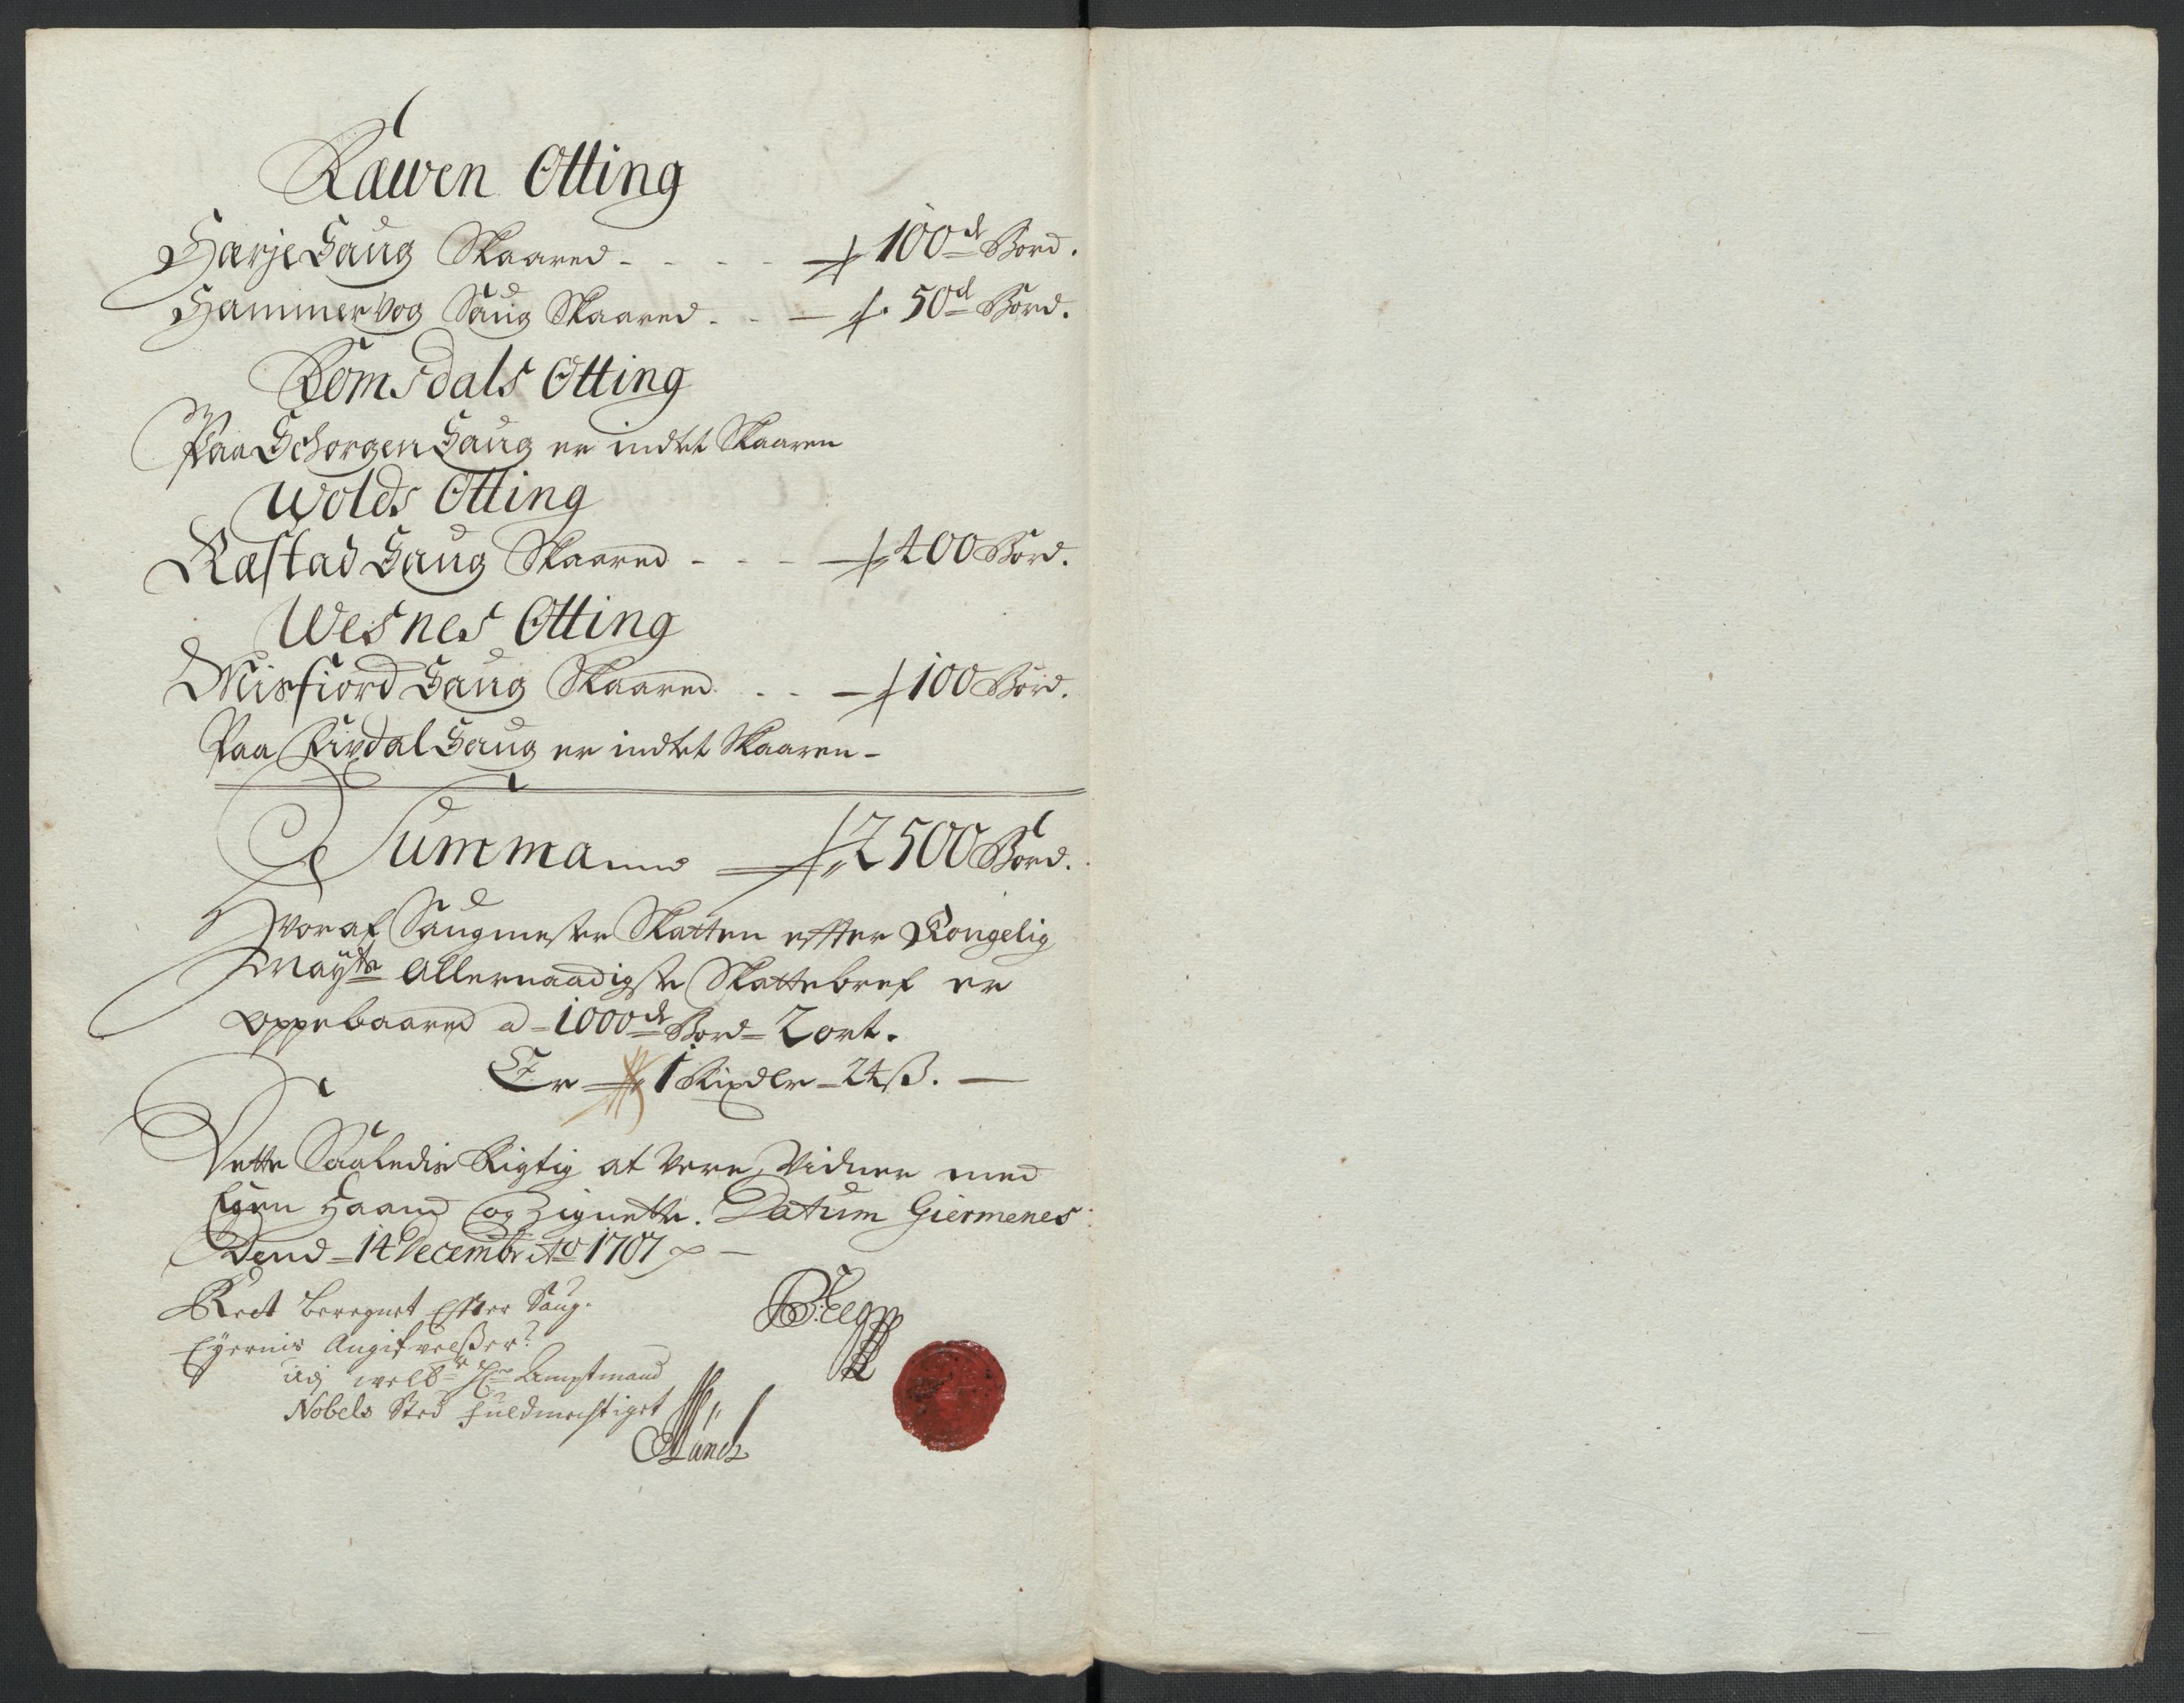 Rawen Otting
Harje Saug Skaared - - - - 100de Bord.
Hammervog Saug Skaared - - 50de Bord.
Romsdals Otting
Paa Schorgen Saug er indtet Skaaren
Wolds Otting
Ræstad Saug Skaared - - - 400 Bord.
Wesnes Otting
Misfiord Saug Skaared - - 100 Bord.
Paa Fixdal Saug er indtet Skaaren -
Summa 2500 Bord.
Hvoraf Saugmester Skatten effter Kongelig
Mayts Allernaadigste Skattebref er
oppebaared a - 1000de Bord - 2 ort.
Er 1 Rixdlr - 24 ß. -
Dette Saaledis Rigtig at vere, Vidner med
Egen Haand og Zignette. Datum Giermenes
Dend - 14 Decembr Ao 1707
Rect beregnet Effter Saug-
Eyernis Angifvelßer
udj welbr Hr Amptmand
Nobels Sted fuldmechtiget
Munch